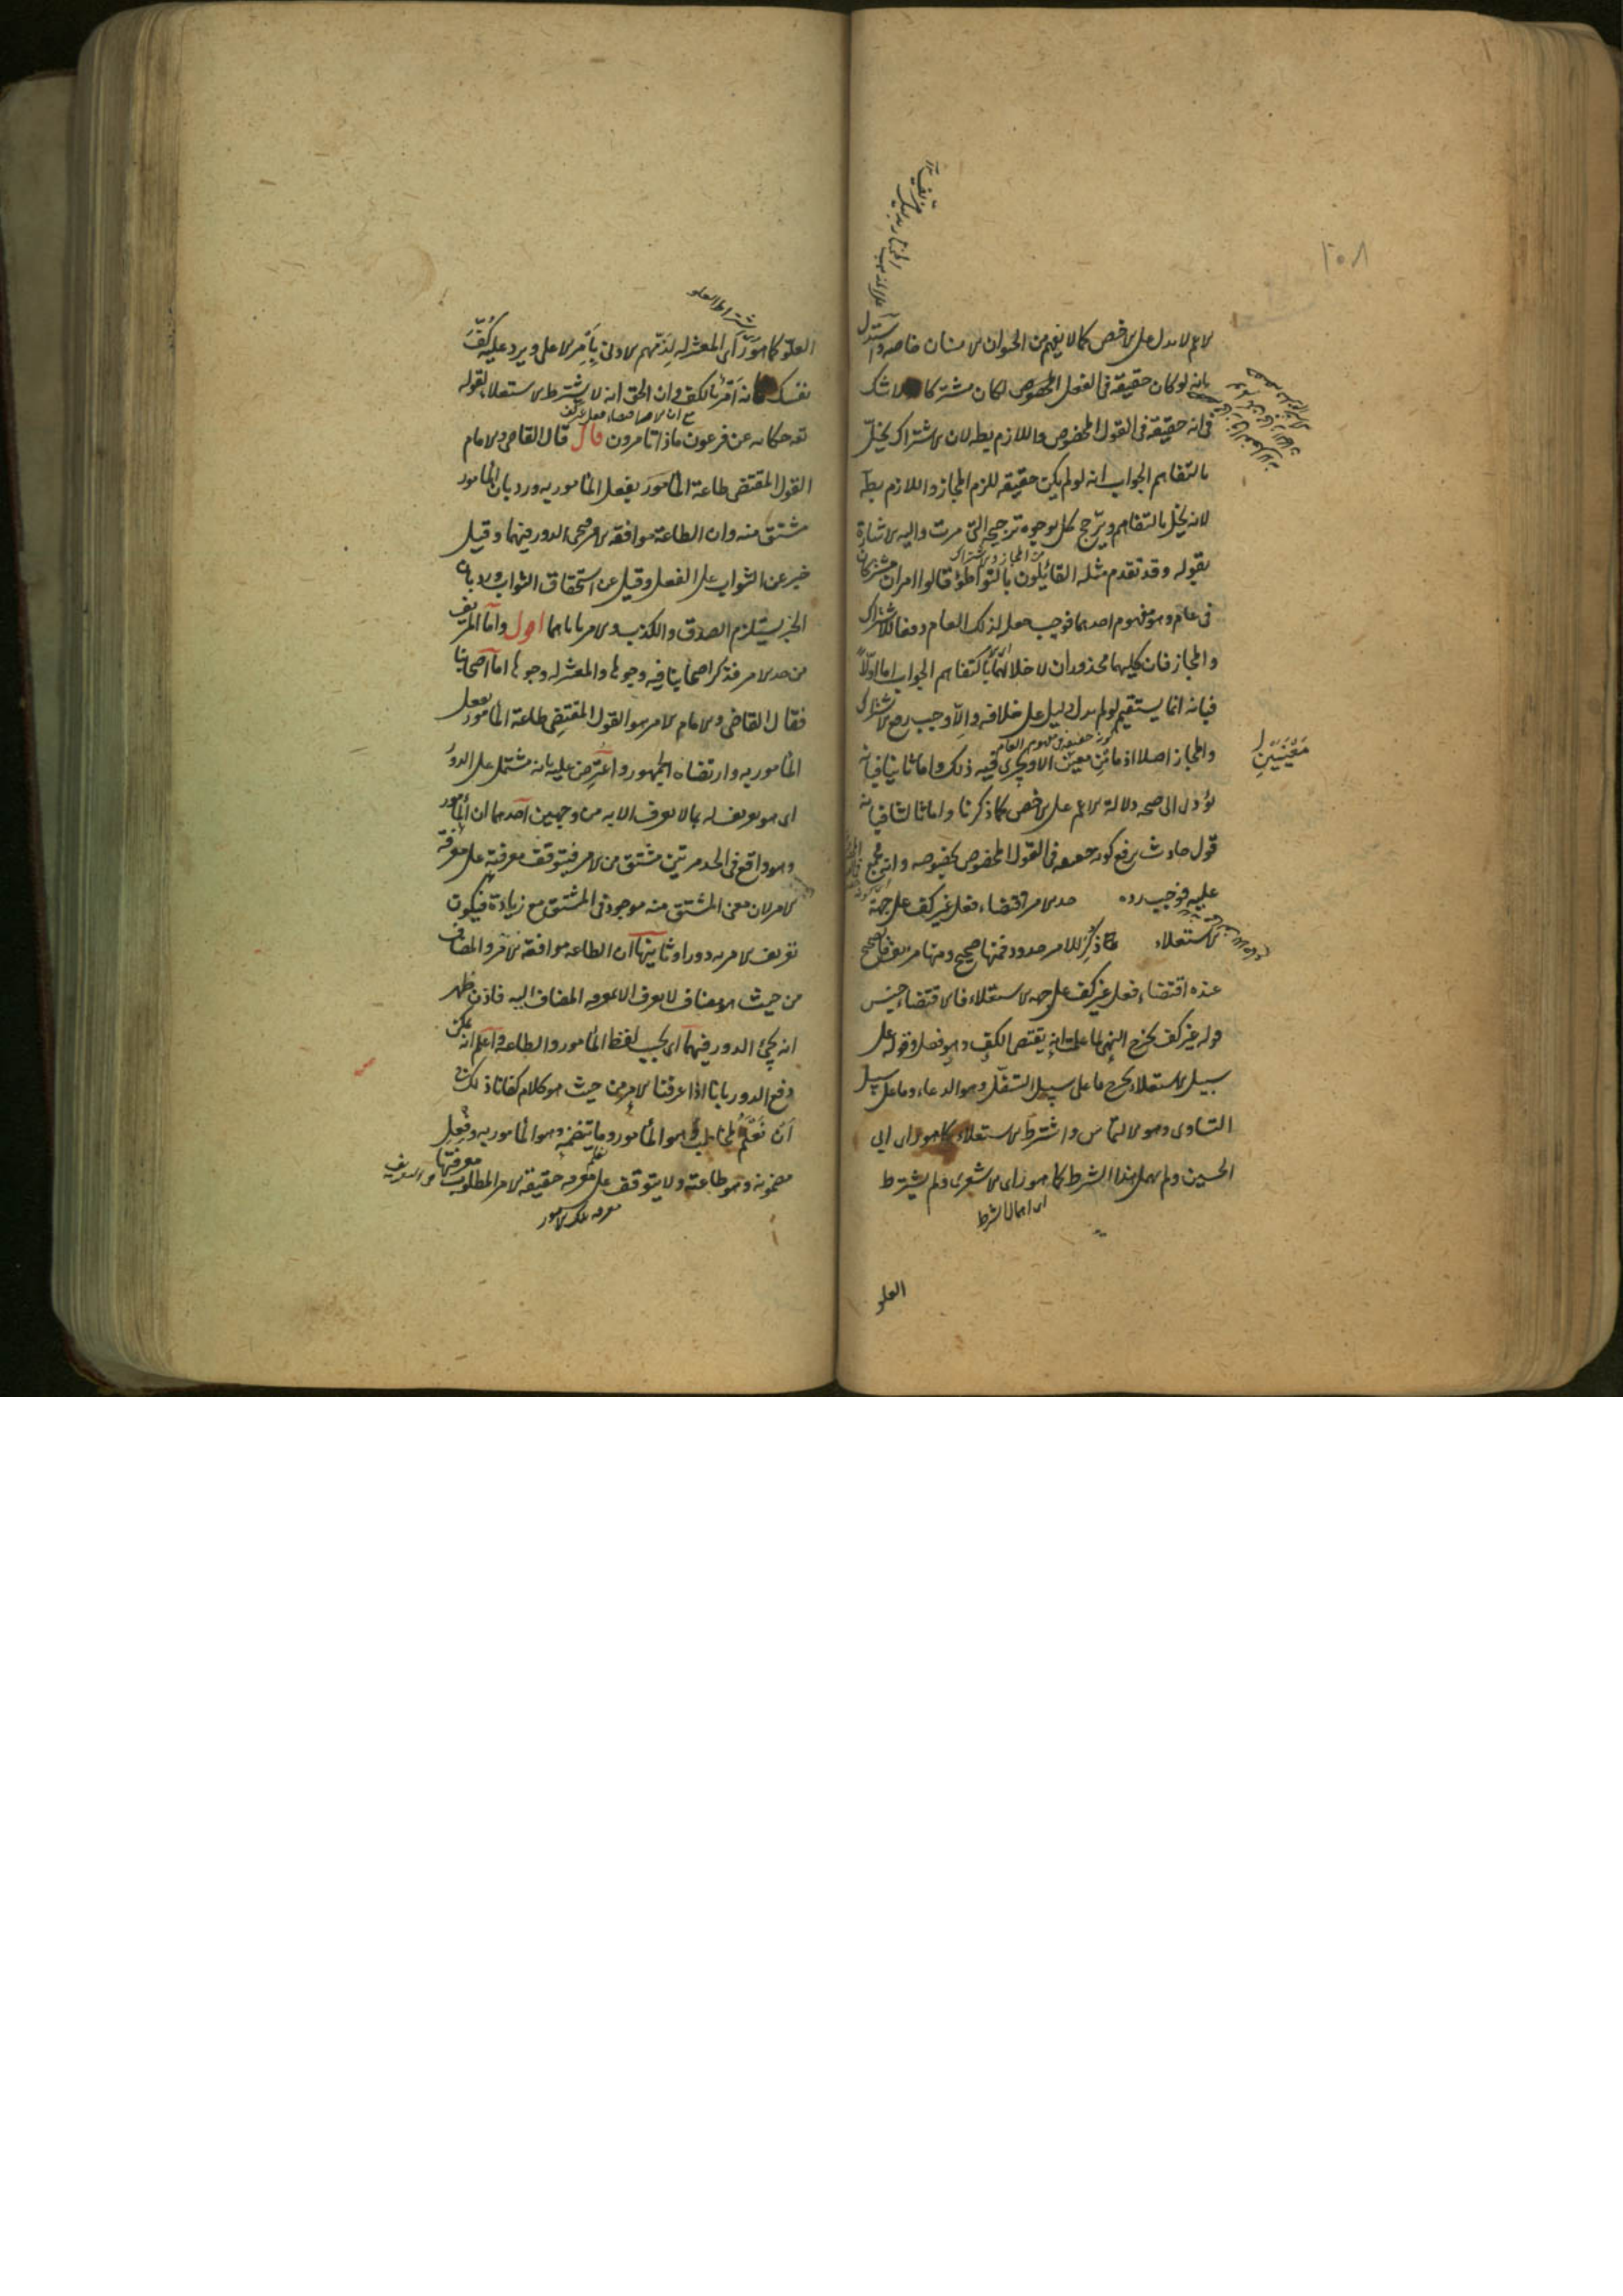 ١٠٨
الاعم لا يدل على الاخص كما لا يفهم من الحيوان الانسان خاصة واستدل
بانه لو كان حقيقة في الفعل المخصوص لكان مشتركا لا شك
في انه حقيقة في القول المخصوص واللازم بط لان الاشتراك يخل
بالتفاهم الجواب انه لو لم يكن حقيقة للزم المجاز واللازم بط
لانه يخل بالتفاهم ويرجح كل بوجوه ترجيحه التي مرت واليه الاشارة
من المجاز والاشتراك
بقوله وقد تقدم مثله القائلون بالتواطؤ قالوا امران مشتركان
في عام وهو مفهوم احدهما فوجب جعله لذلك العام دفعا للاشتراك
والمجاز فان كليهما محذوران لاخلالهما بالتفاهم الجواب اما اولا
فبانه انما يستقيم لو لم يدل دليل على خلافه والا وجب رفع الاشتراك
والمجاز اصلا اذ ما من معينين الا ويجري فيه ذلك واما ثانيا فبانه
معنيين
يؤدى الى صحة دلالة الاعم على الاخص كما ذكرنا واما ثالثا فبانه
قول حادث يرفع كونه حقيقة في القول المخصوص بخصوصه وانه مجمع
عليه فوجب رده حد الامر اقتضاء فعل غير كف على جهة
الاستعلاء قد ذكر للامر حدود فمنها صحيح ومنها مزيف فالصحيح
عنده اقتضاء فعل غير كف على جهة الاستعلاء فالاقتضاء جنس
قوله غير كف يخرج النهي لما علمت انه يقتضي الكف وهو فعل وقوله على
سبيل الاستعلاء يخرج ما على سبيل التسفل وهو الدعاء وما على سبيل
التساوى وهو الالتماس واشترط الاستعلاء كما هو راى ابى
الحسين ولم يهمل هذا الشرط كما هو راى الاشعرى ولم يشترط
اى اهمال الشرط
العلو
اشتراط العلو
العلو كما هو راى المعتزلة لذمهم الادنى بامر الاعلى ويرد عليه كف
نفسك فانه امر بالكف وان الحق انه لا يشترط الاستعلاء لقوله
تعه حكاية عن فرعون ماذا تامرون قال قال القاضى والامام
القول المقتضى طاعة المأمور بفعل المأمور به ورد بان المأمور
مشتق منه وان الطاعة موافقة الامر فيجئ الدور فيهما وقيل
خبر عن الثواب على الفعل وقيل عن استحقاق الثواب ورد بان
الخبر يستلزم الصدق والكذب والامر ياباهما اقول واما المزيف
من حد الامر فذكر اصحابنا فيه وجوها والمعتزلة وجوها اما اصحابنا
فقال القاضى والامام الامر هو القول المقتضى طاعة المأمور بفعل
المأمور به وارتضاه الجمهور واعترض عليه بانه مشتمل على الدور
اى هو تعريف له بما لا يعرف الا به من وجهين احدهما ان المأمور
وهو واقع في الحد مرتين مشتق من الامر فيتوقف معرفته على معرفة
الامر لان معنى المشتق منه موجود في المشتق مع زيادة فيكون
تعريف الامر به دورا وثانيهما ان الطاعة موافقة الامر والمضاف
من حيث هو مضاف لا يعرف الا بمعرفة المضاف اليه فاذن ظهر
انه يجئ الدور فيهما اى بحسب لفظ المأمور والطاعة واعلم انه يمكن
دفع الدور بانا اذا عرفنا الامر من حيث هو كلام كفانا ذلك في
ان نعلم المخاطب به وهو المأمور وما يتضمنه وهو المأمور به وفعل
مضمونه وهو طاعته ولا يتوقف على معرفة حقيقة الامر المطلوب معرفتها
معرفة تلك الامور